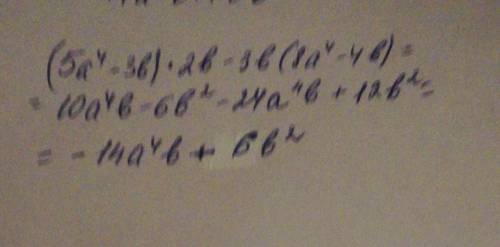 (5a⁴-3b)·2b-3b(8a⁴-4b)=
=10a⁴b-6b²-24a⁴b+12b²=
=-14a⁴b+6b²